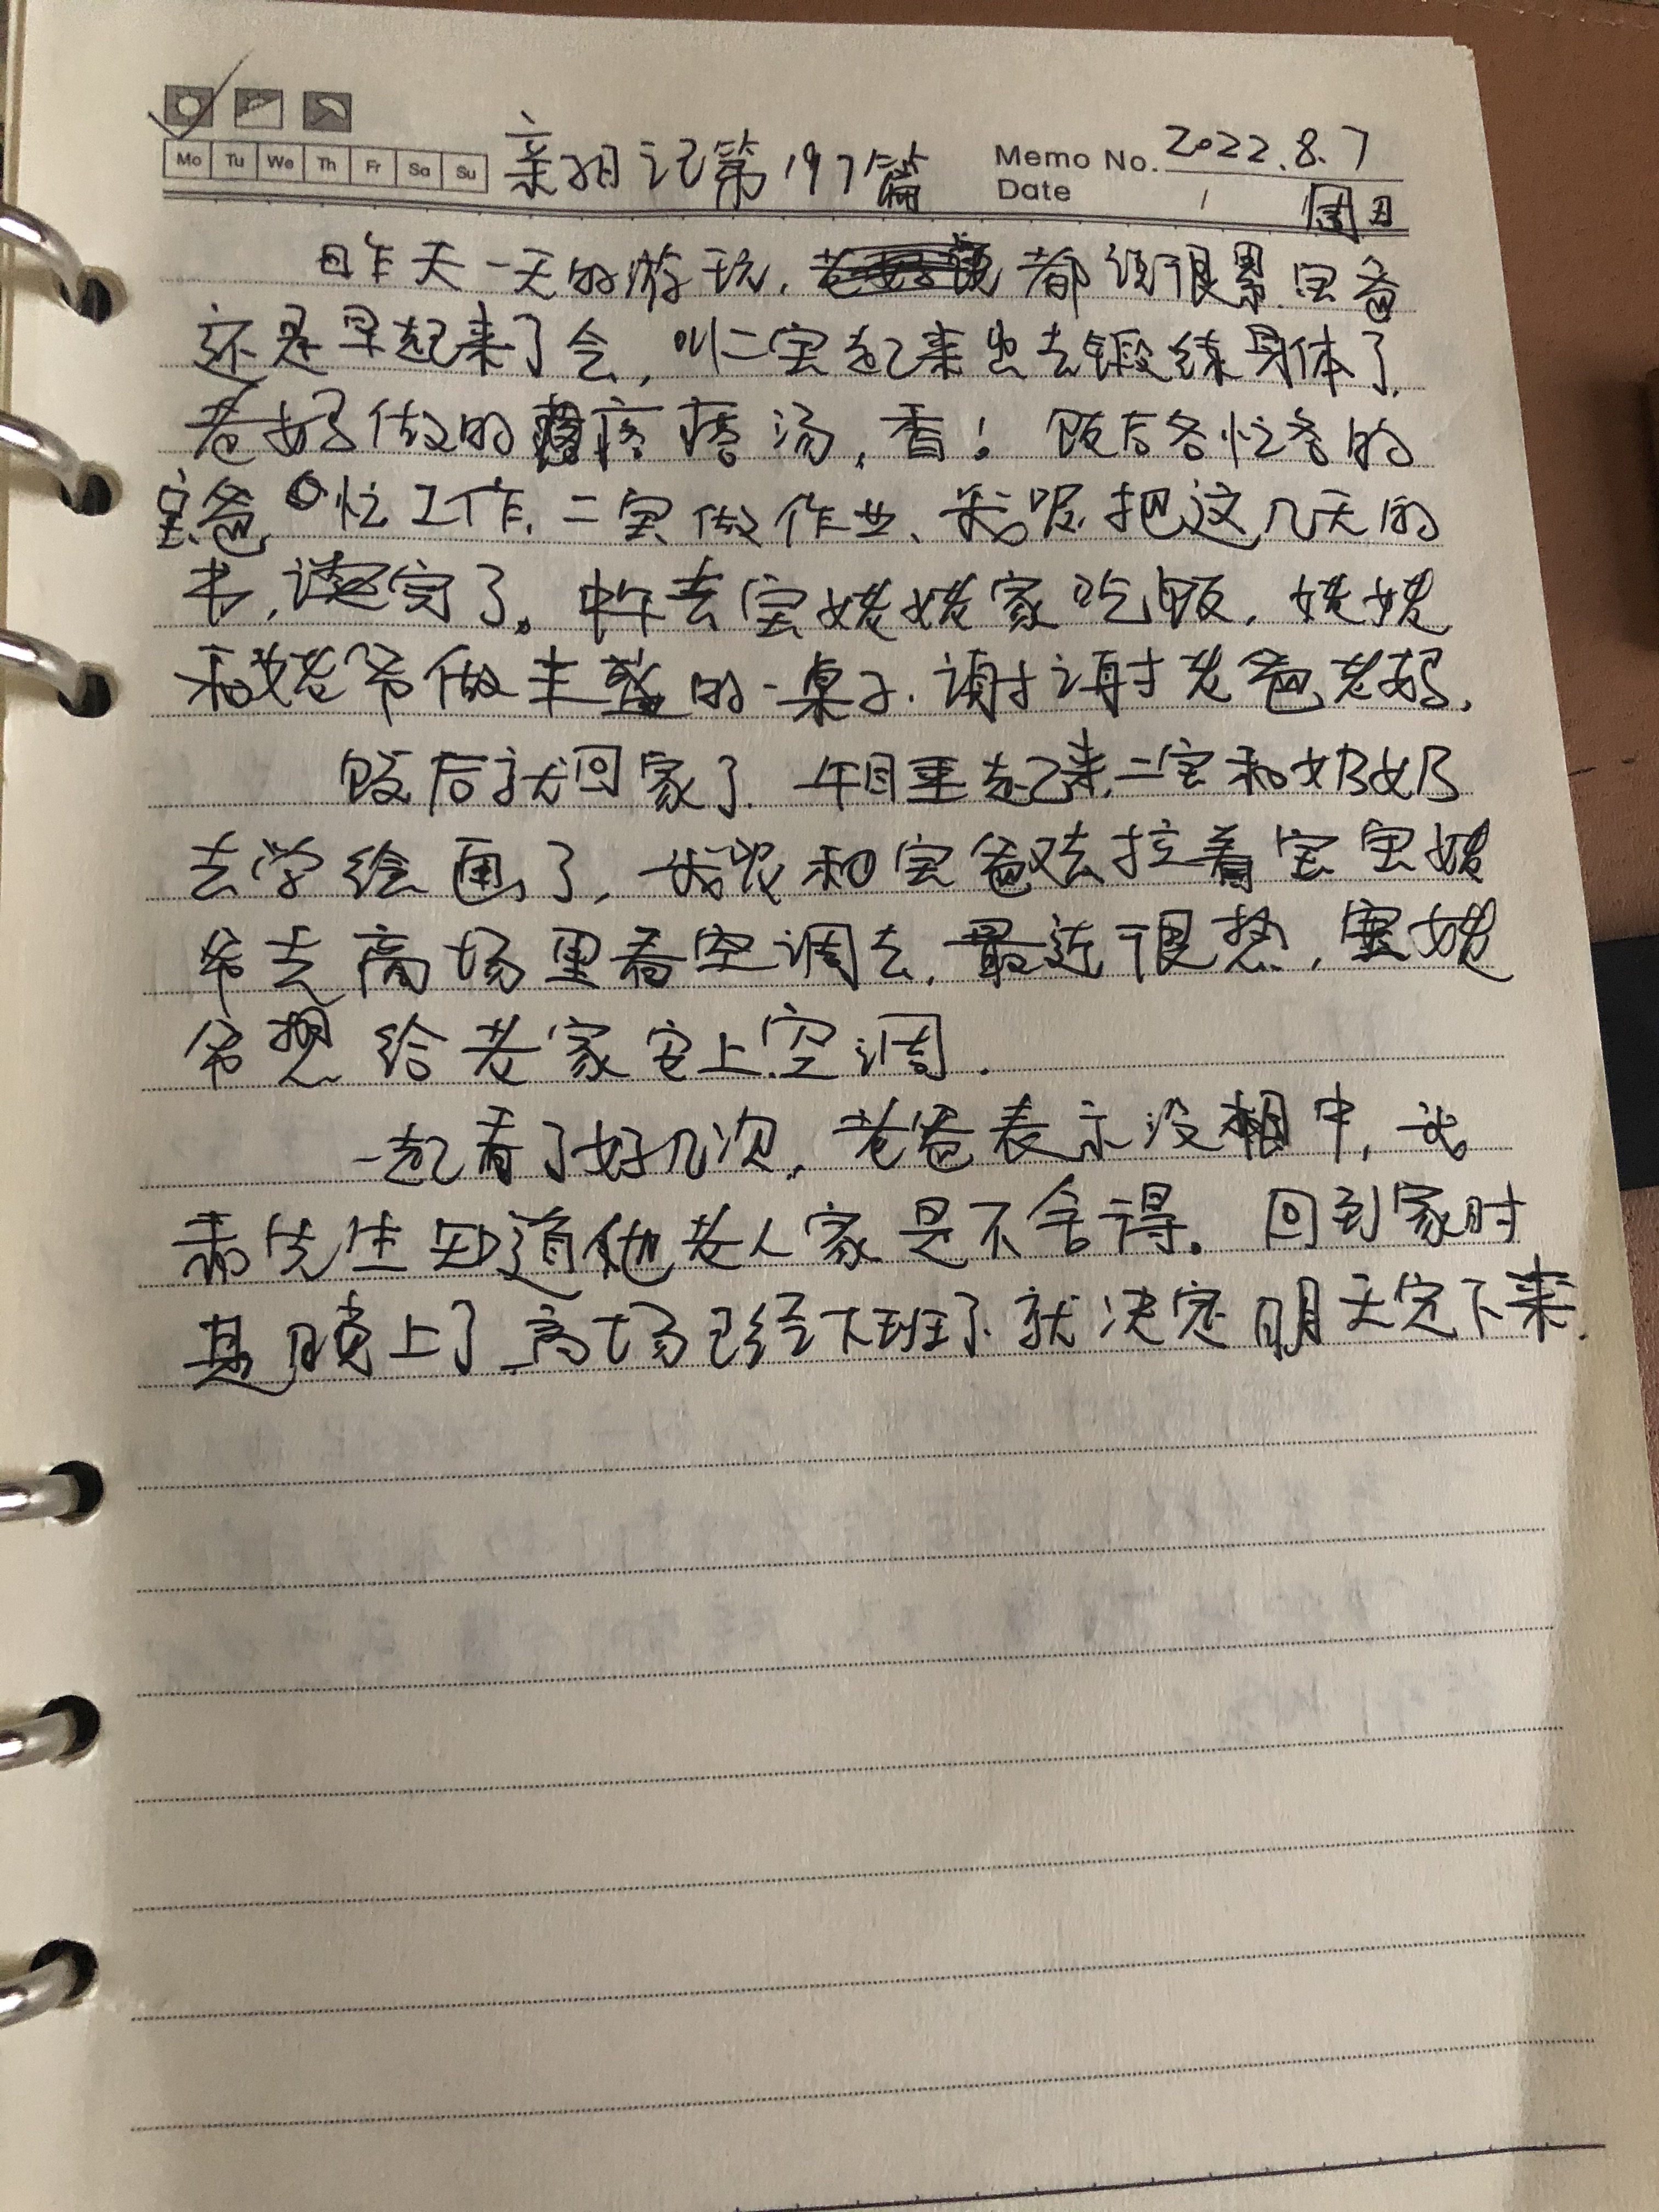 Mo Tu We Th Fr Sa Su 亲子日记第197篇 Memo No. 2022.8.7
Date / 周日
昨天一天的游玩，都说很累.宝爸
还是早起来了会，叫二宝起来出去锻练身体了.
老妈做的疙瘩汤，香！饭后各忙各的
宝爸忙工作，二宝做作业、我呢把这几天的
书，读完了。中午去宝姥姥家吃饭，姥姥
和姥爷做丰盛的一桌子.谢谢老爸老妈，
饭后就回家了.午睡起来，二宝和奶奶
去学绘画了，我和宝爸又去拉着宝宝姥
爷去商场里看空调去，最近很热，宝姥
爷想给老家安上空调.
一起看了好几次，老爸表示没相中，我
先生知道他老人家是不舍得。回到家时
晚上了.商场已经下班了.就决定明天定下来.